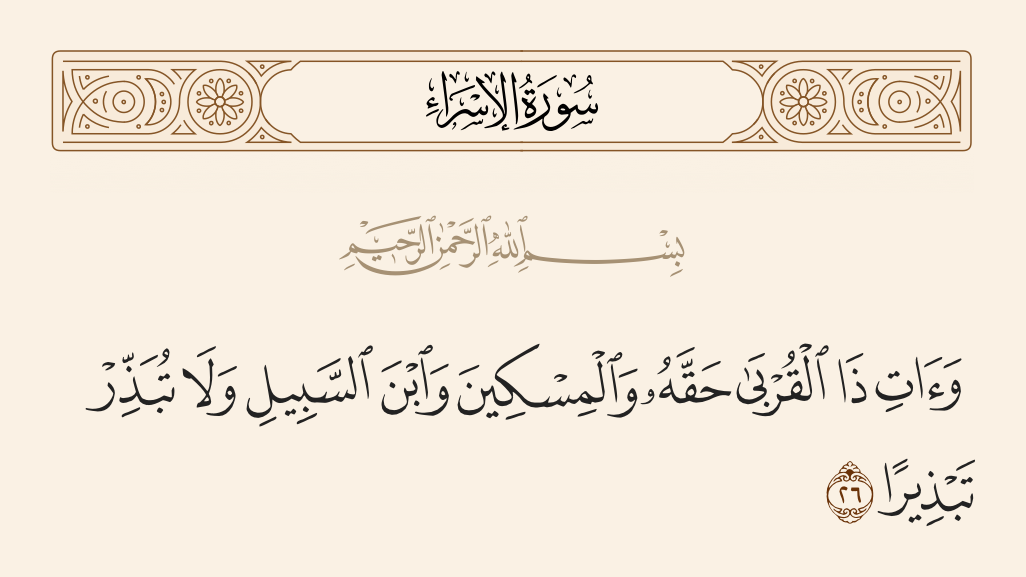 سُورَةُ الإِسْرَاءِ
بِسْمِ ٱللَّهِ ٱلرَّحْمَٰنِ ٱلرَّحِيمِ
وَءَاتِ ذَا ٱلْقُرْبَىٰ حَقَّهُۥ وَٱلْمِسْكِينَ وَٱبْنَ ٱلسَّبِيلِ وَلَا تُبَذِّرْ
تَبْذِيرًا ٢٦